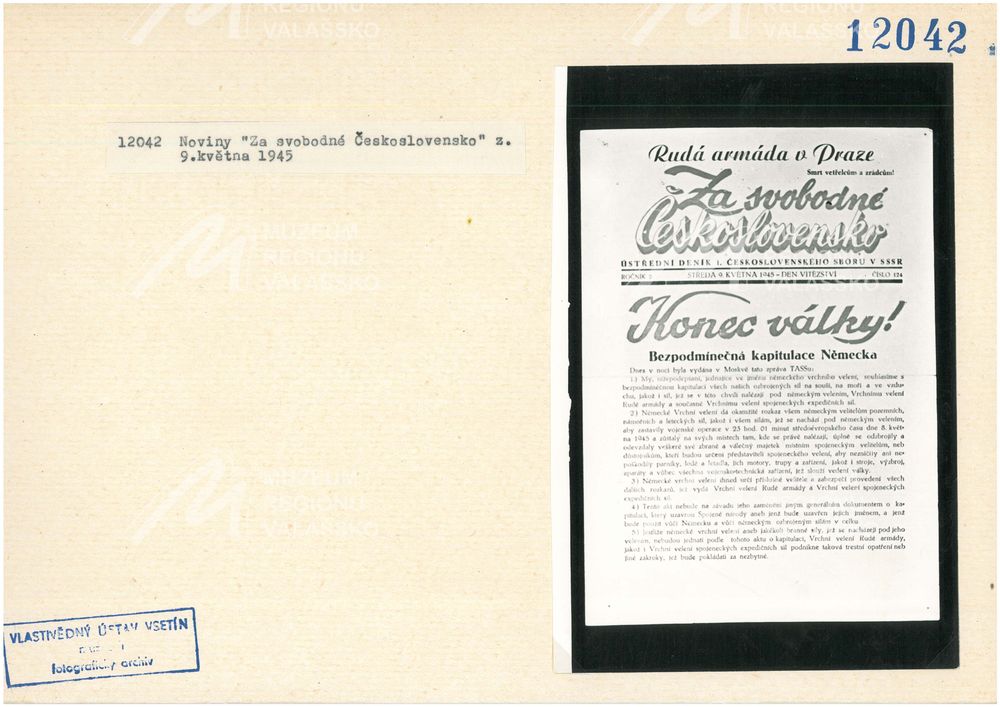 12042
12042 Noviny "Za svobodné Československo" z.
9.května 1945
Rudá armáda v Praze
Smrt vetřelcům a zrádcům!
Za svobodné
Československo
ÚSTŘEDNÍ DENÍK 1. ČESKOSLOVENSKÉHO SBORU V SSSR
ROČNÍK 2 STŘEDA 9. KVĚTNA 1945 - DEN VÍTĚZSTVÍ ČÍSLO 124
Konec války!
Bezpodmínečná kapitulace Německa
Dnes v noci byla vydána v Moskvě tato zpráva TASSu:
1) My, nížepodepsaní, jednajíce ve jménu německého vrchního velení, souhlasíme s
bezpodmínečnou kapitulací všech našich ozbrojených sil na souši, na moři a ve vzdu-
chu, jakož i sil, jež se v této chvíli nalézají pod německým velením, Vrchnímu velení
Rudé armády a současně Vrchnímu velení spojeneckých expedičních sil.
2) Německé Vrchní velení dá okamžitě rozkaz všem německým velitelům pozemních,
námořních a leteckých sil, jakož i všem silám, jež se nachází pod německým velením,
aby zastavily vojenské operace v 23 hod. 01 minut středoevropského času dne 8. květ-
na 1945 a zůstaly na svých místech tam, kde se právě nalézají, úplně se odzbrojily a
odevzdaly veškeré své zbraně a válečný majetek místním spojeneckým velitelům, neb
důstojníkům, kteří budou určeni představiteli spojeneckého velení, aby nezničily ani ne-
poškodily parníky, lodě a letadla, jich motory, trupy a zařízení, jakož i stroje, výzbroj,
aparáty a vůbec všechna vojenskotechnická zařízení, jež slouží vedení války.
3) Německé vrchní velení ihned určí příslušné velitele a zabezpečí provedení všech
dalších rozkazů, jež vydá Vrchní velení Rudé armády a Vrchní velení spojeneckých
expedičních sil.
4) Tento akt nebude na závadu jeho zaměnění jiným generálním dokumentem o ka-
pitulaci, který uzavrou Spojené národy aneb jenž bude uzavřen jejich jménem, a jenž
bude použit vůči Německu a vůči německým ozbrojeným silám v celku
5) Jestliže německé vrchní velení aneb jakékoli branné síly, jež se nacházejí pod jeho
velením, nebudou jednati podle tohoto aktu o kapitulaci, Vrchní velení Rudé armády,
jakož i Vrchní velení spojeneckých expedičních sil podnikne taková trestní opatření neb
jiné zákroky, jež bude pokládati za nezbytné.
VLASTIVĚDNÝ ÚSTAV VSETÍN
fotografický archiv
MUZEUM
REGIONU
VALAŠSKO